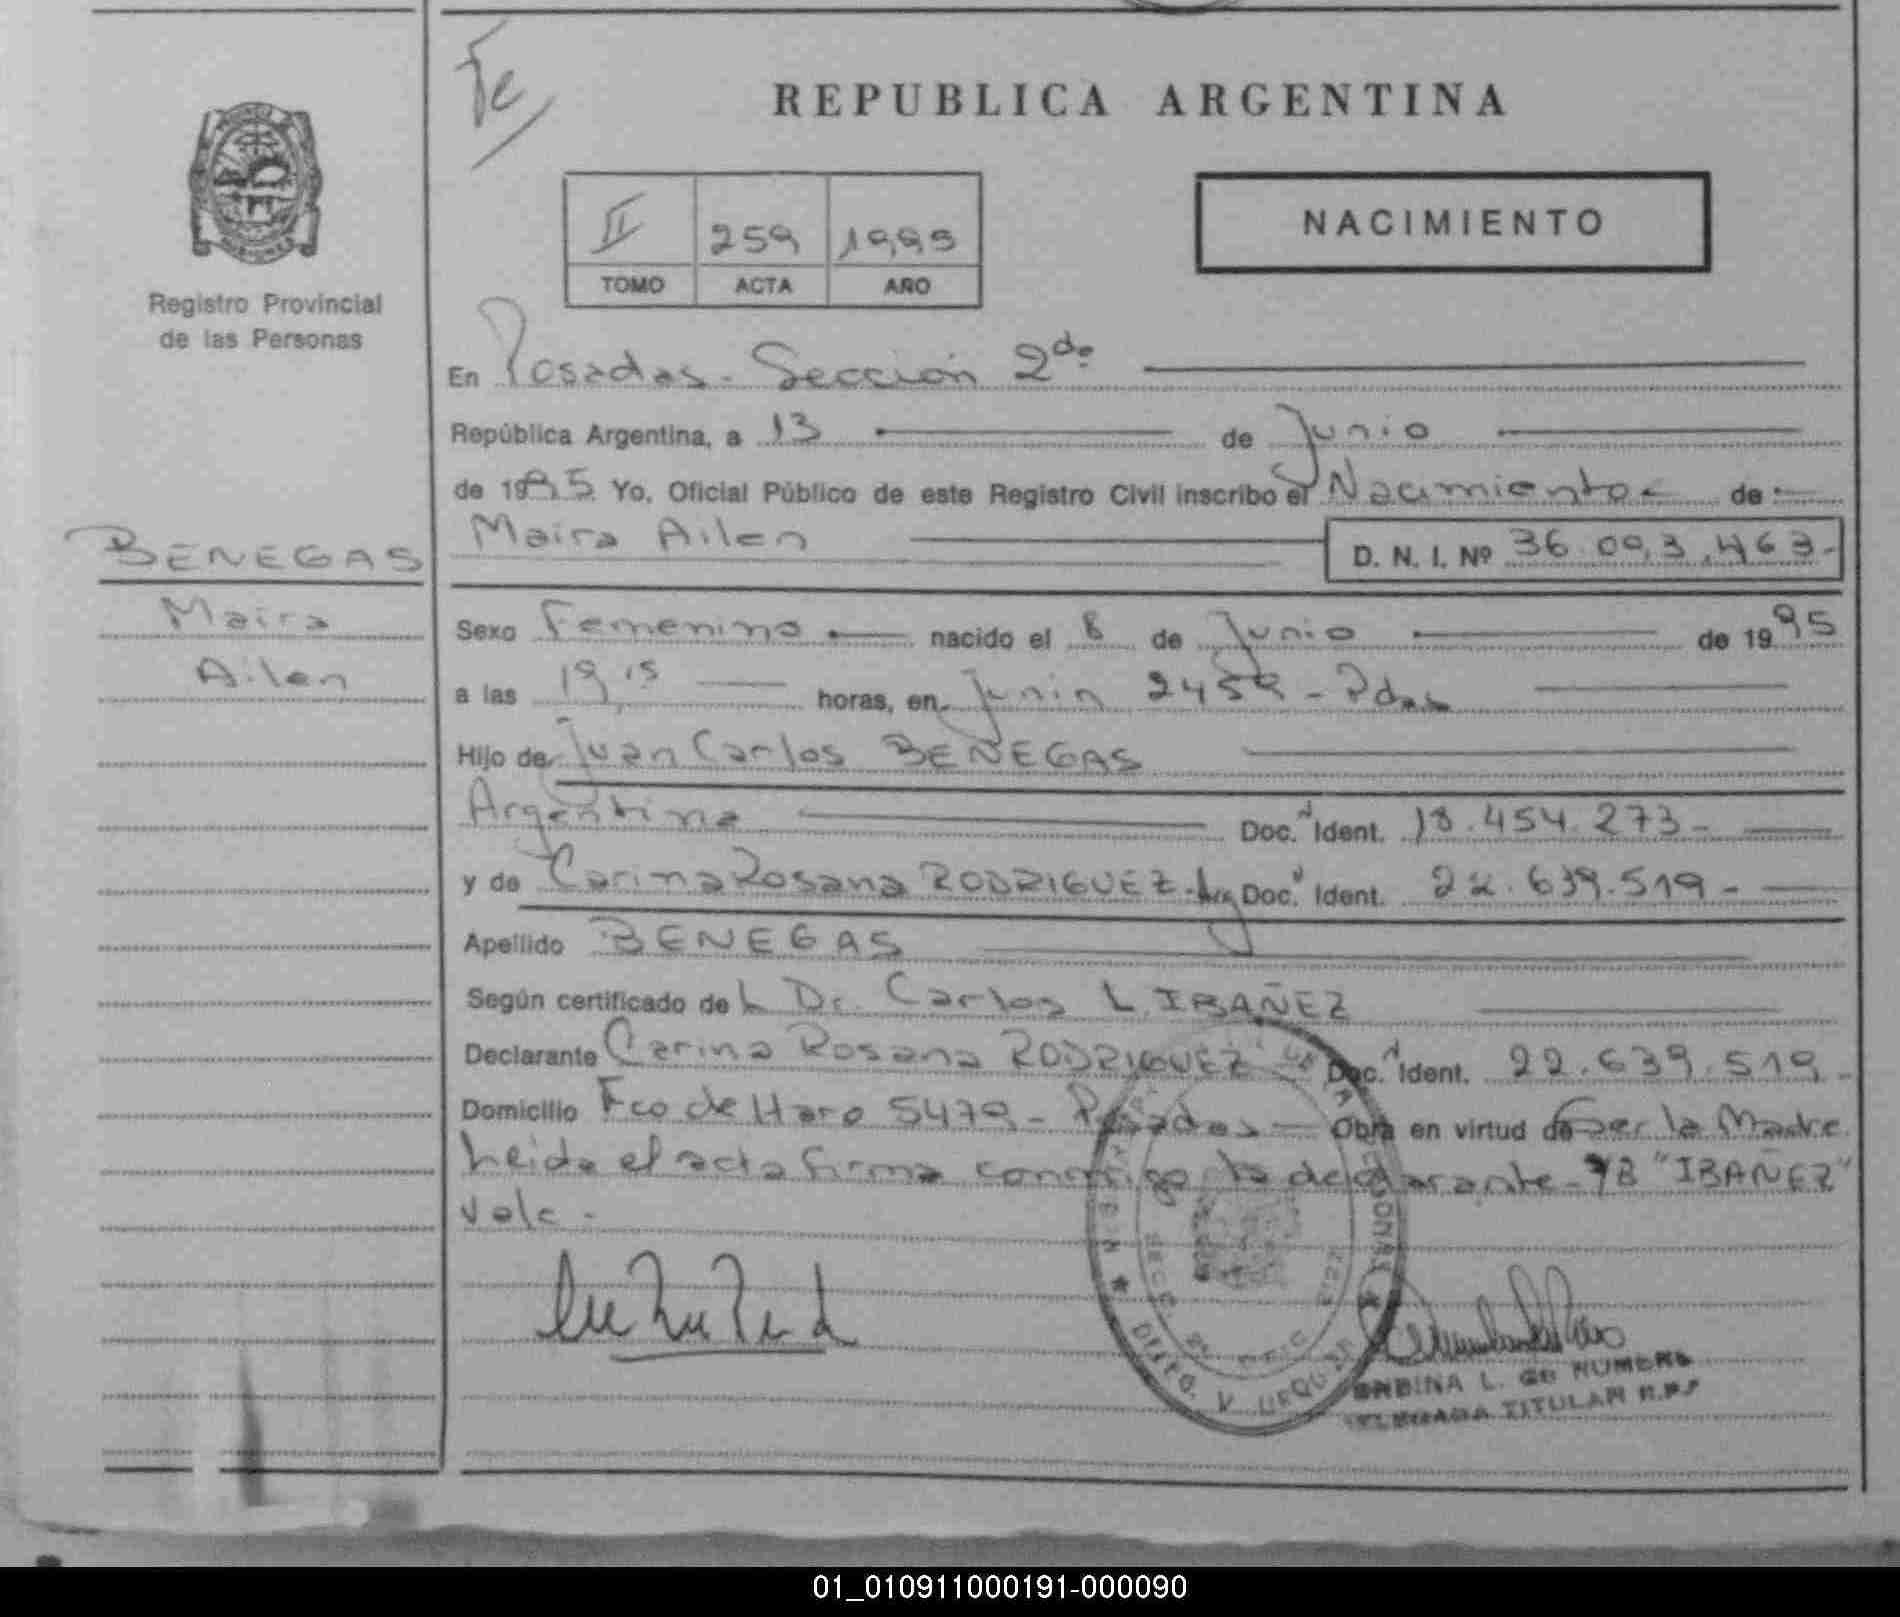 Fe
REPUBLICA ARGENTINA
II 259 1995
TOMO ACTA AÑO
NACIMIENTO
Registro Provincial
de las Personas
En Posadas - Sección 2da
República Argentina, a 13 de Junio
de 1995. Yo, Oficial Público de este Registro Civil inscribo el Nacimiento de
BENEGAS
Maira Ailen D. N. I. Nº 36.003.463-
Maira
Ailen
Sexo Femenino nacido el 8 de Junio de 1995
a las 19,15 horas, en Junin 2459 - Pdas
Hijo de Juan Carlos BENEGAS
Argentina Doc. Ident. 18.454.273-
y de Carina Rosana RODRIGUEZ - Arg Doc. Ident. 22.639.519-
Apellido BENEGAS
Según certificado del Dr. Carlos L. IBAÑEZ
Declarante Carina Rosana RODRIGUEZ Doc. Ident. 22.639.519-
Domicilio Fco de Haro 5479 - Posadas - Obra en virtud de Ser la Madre.
Leida el acta firma conmigo la declarante - "IBAÑEZ"
Vale -
TITULAR R.P.P
01_010911000191-000090